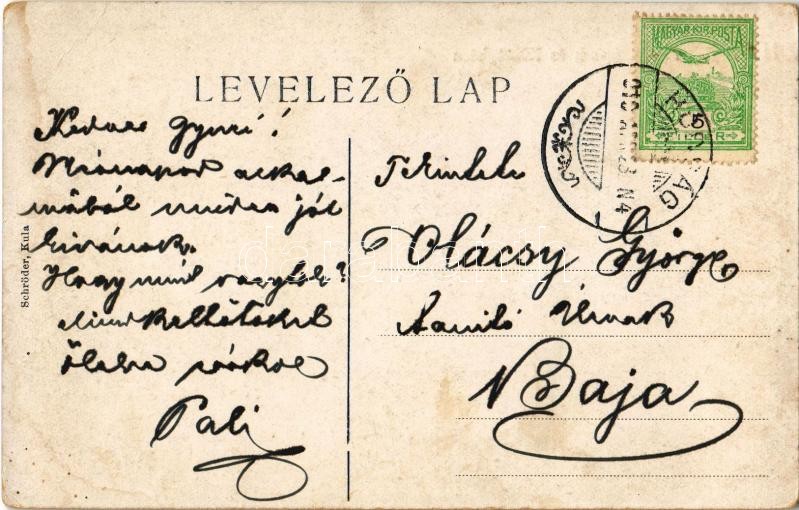 LEVELEZŐ LAP
MAGYAR KIR. POSTA
5
Kedves Gyuri!
Névnapod alkal-
mából minden jót
kivánok.
Hogy mind vagytok?
Mind
Ölelve csókol
Pali
Schröder, Kula
Tekintetes
Olácsy György
Tanító Úrnak
Baja